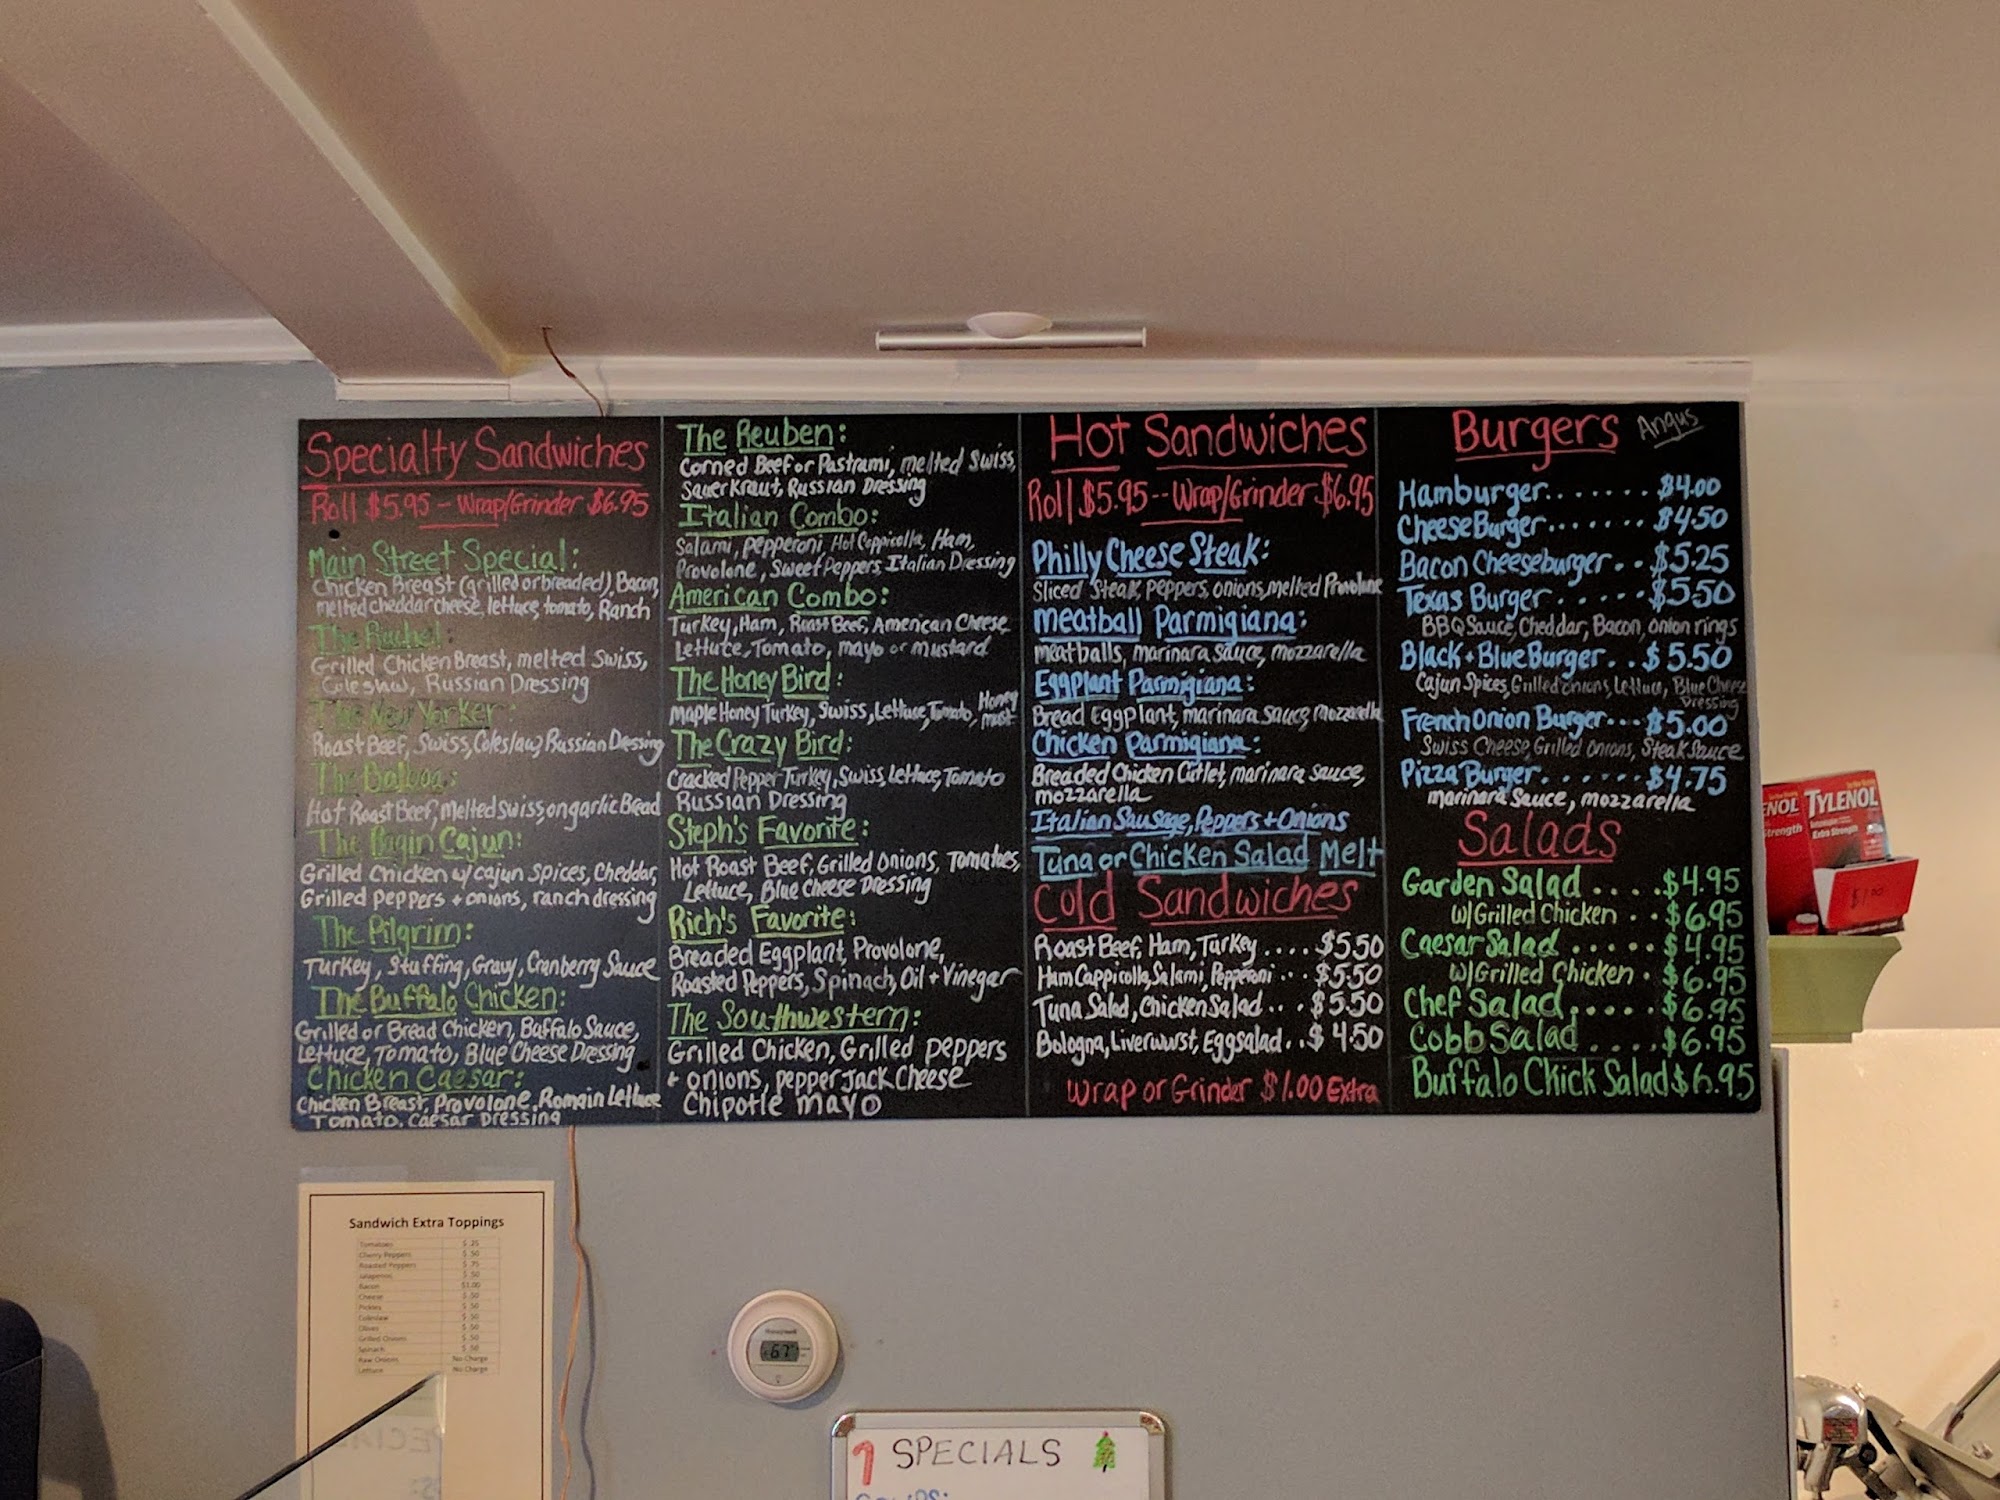 Specialty Sandwiches
Roll $5.95 - Wrap/Grinder $6.95
Main Street Special:
Chicken Breast (grilled or breaded), Bacon,
melted cheddar cheese, lettuce, tomato, Ranch
The Rachel:
Grilled Chicken Breast, melted Swiss,
Coleslaw, Russian Dressing
The New Yorker:
Roast Beef, Swiss, Coleslaw, Russian Dressing
The Balboa:
Hot Roast Beef, Melted Swiss, on garlic Bread
The Ragin Cajun:
Grilled Chicken w/ cajun Spices, Cheddar,
Grilled peppers + onions, ranch dressing
The Pilgrim:
Turkey, Stuffing, Gravy, Cranberry Sauce
The Buffalo Chicken:
Grilled or Bread Chicken, Buffalo Sauce,
Lettuce, Tomato, Blue Cheese Dressing
Chicken Caesar:
Chicken Breast, Provolone, Romain Lettuce
Tomato, Caesar Dressing
The Reuben:
Corned Beef or Pastrami, melted Swiss,
Sauer Kraut, Russian Dressing
Italian Combo:
Salami, pepperoni, Hot Cappicolla, Ham,
Provolone, Sweet Peppers, Italian Dressing
American Combo:
Turkey, Ham, Roast Beef, American Cheese
Lettuce, Tomato, mayo or mustard
The Honey Bird:
Maple Honey Turkey, Swiss, Lettuce, Tomato, Honey
must
The Crazy Bird:
Cracked Pepper Turkey, Swiss, Lettuce, Tomato
Russian Dressing
Steph's Favorite:
Hot Roast Beef, Grilled onions, Tomatoes,
Lettuce, Blue Cheese Dressing
Rich's Favorite:
Breaded Eggplant, Provolone,
Roasted Peppers, Spinach, Oil + Vinegar
The Southwestern:
Grilled Chicken, Grilled peppers
+ onions, pepper Jack Cheese
Chipotle mayo
Hot Sandwiches
Roll $5.95 -- Wrap/Grinder $6.95
Philly Cheese Steak:
Sliced Steak, peppers, onions, melted Provolone
Meatball Parmigiana:
meatballs, marinara sauce, mozzarella
Eggplant Parmigiana:
Bread Eggplant, marinara sauce, mozzarella
Chicken Parmigiana:
Breaded Chicken Cutlet, marinara sauce,
mozzarella
Italian Sausage, Peppers + Onions
Tuna or Chicken Salad Melt
Cold Sandwiches
Roast Beef, Ham, Turkey .... $5.50
Ham Cappicolla, Salami, Pepperoni ... $5.50
Tuna Salad, Chicken Salad ... $5.50
Bologna, Liverwurst, Eggsalad .. $4.50
Wrap or Grinder $1.00 Extra
Burgers Angus
Hamburger....... $4.00
CheeseBurger....... $4.50
Bacon Cheeseburger .. $5.25
Texas Burger ...... $5.50
BBQ Sauce, Cheddar, Bacon, onion rings
Black + Blue Burger .. $5.50
Cajun Spices, Grilled onions, Lettuce, Blue Cheese
Dressing
French Onion Burger... $5.00
Swiss Cheese, Grilled onions, Steak Sauce
Pizza Burger....... $4.75
marinara Sauce, mozzarella
Salads
Garden Salad .... $4.95
w/ Grilled Chicken .. $6.95
Caesar Salad ..... $4.95
w/ Grilled Chicken . $6.95
Chef Salad ..... $6.95
Cobb Salad .... $6.95
Buffalo Chick Salad $6.95
TYLENOL
Extra Strength
$1.00
Sandwich Extra Toppings
Tomatoes $ .25
Cherry Peppers $ .50
Roasted Peppers $ .75
Jalapenos $ .50
Bacon $1.00
Cheese $ .50
Pickles $ .50
Coleslaw $ .50
Olives $ .50
Grilled Onions $ .50
Spinach $ .50
Raw Onions No Charge
Lettuce No Charge
Honeywell
67
SPECIALS